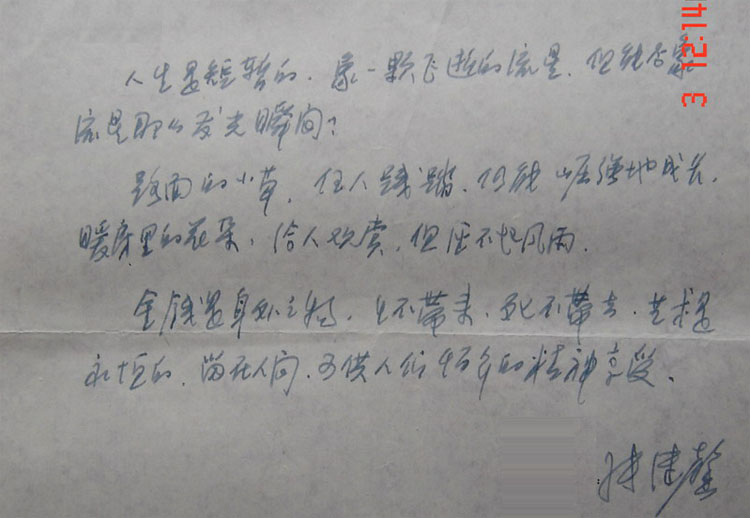 人生是短暂的，象一颗飞逝的流星，但能否象
流星那么发光瞬间？
路面的小草，任人践踏，仍能崛强地成长，
暖房里的花朵，给人欣赏，但经不起风雨。
金钱是身外之物，生不带来，死不带去，艺术是
永恒的，留在人间，可供人们的精神享受。
12:14
3